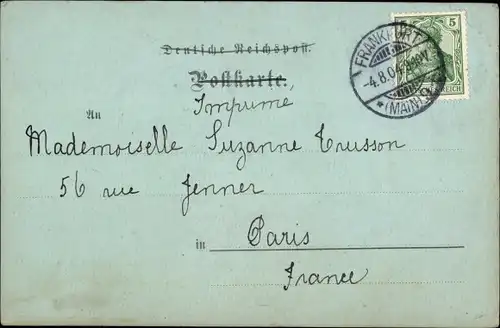 Deutsche Reichspost.
Postkarte.
Imprimé
An
Mademoiselle Suzanne Trusson
56 rue Jenner
in Paris
France
5
REICH
FRANKFURT
-4.8.0
*(MAIN)